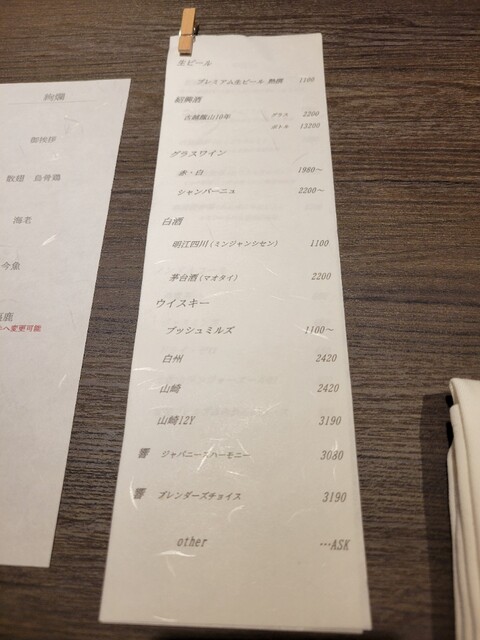 絢爛
御挨拶
散翅 烏骨鶏
海老
今魚
鹿
へ変更可能
生ビール
プレミアム生ビール 熟撰 1100
紹興酒
古越龍山10年 グラス 2200
ボトル 13200
グラスワイン
赤・白 1980～
シャンパーニュ 2200～
白酒
明江四川(ミンジャンシセン) 1100
茅台酒(マオタイ) 2200
ウイスキー
ブッシュミルズ 1100～
白州 2420
山崎 2420
山崎12Y 3190
響 ジャパニーズハーモニー 3080
響 ブレンダーズチョイス 3190
other …ASK